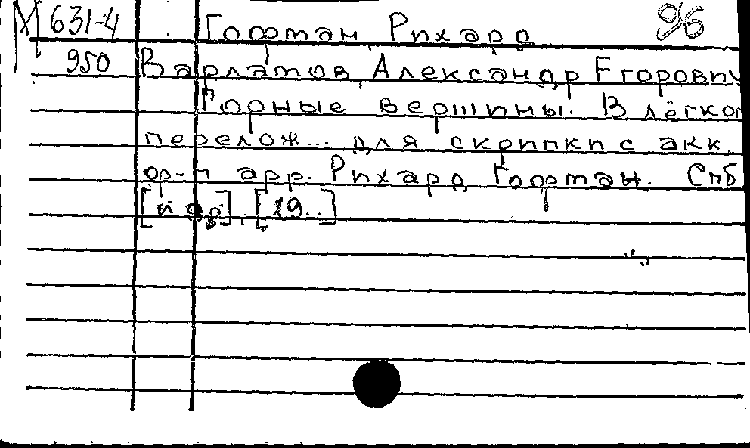 М 631-4 Гофман, Рихард 96
950 Варламов, Александр Егорович
Горные вершины. В лёгко
перелож... для скрипки с акк.
ф-п арр. Рихард Гофман. Спб
[и др], [19..]